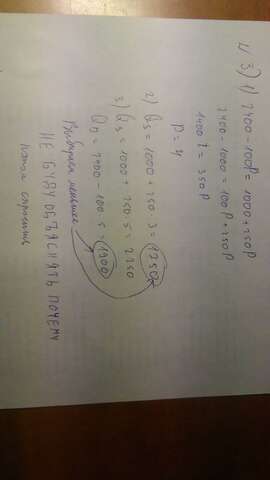 N 3) 1) 2400-100P = 1000+250P
2400-1000 = 100P+250P
1400 = 350P
P=4
2) Qs = 1000+250·3 = 1750
3) Qs = 1000 + 250·5 = 2250
Qd = 2400 - 100·5 = 1900
Выбираем меньшее
НЕ БУДУ ОБЪЯСНЯТЬ ПОЧЕМУ
потом спросишь